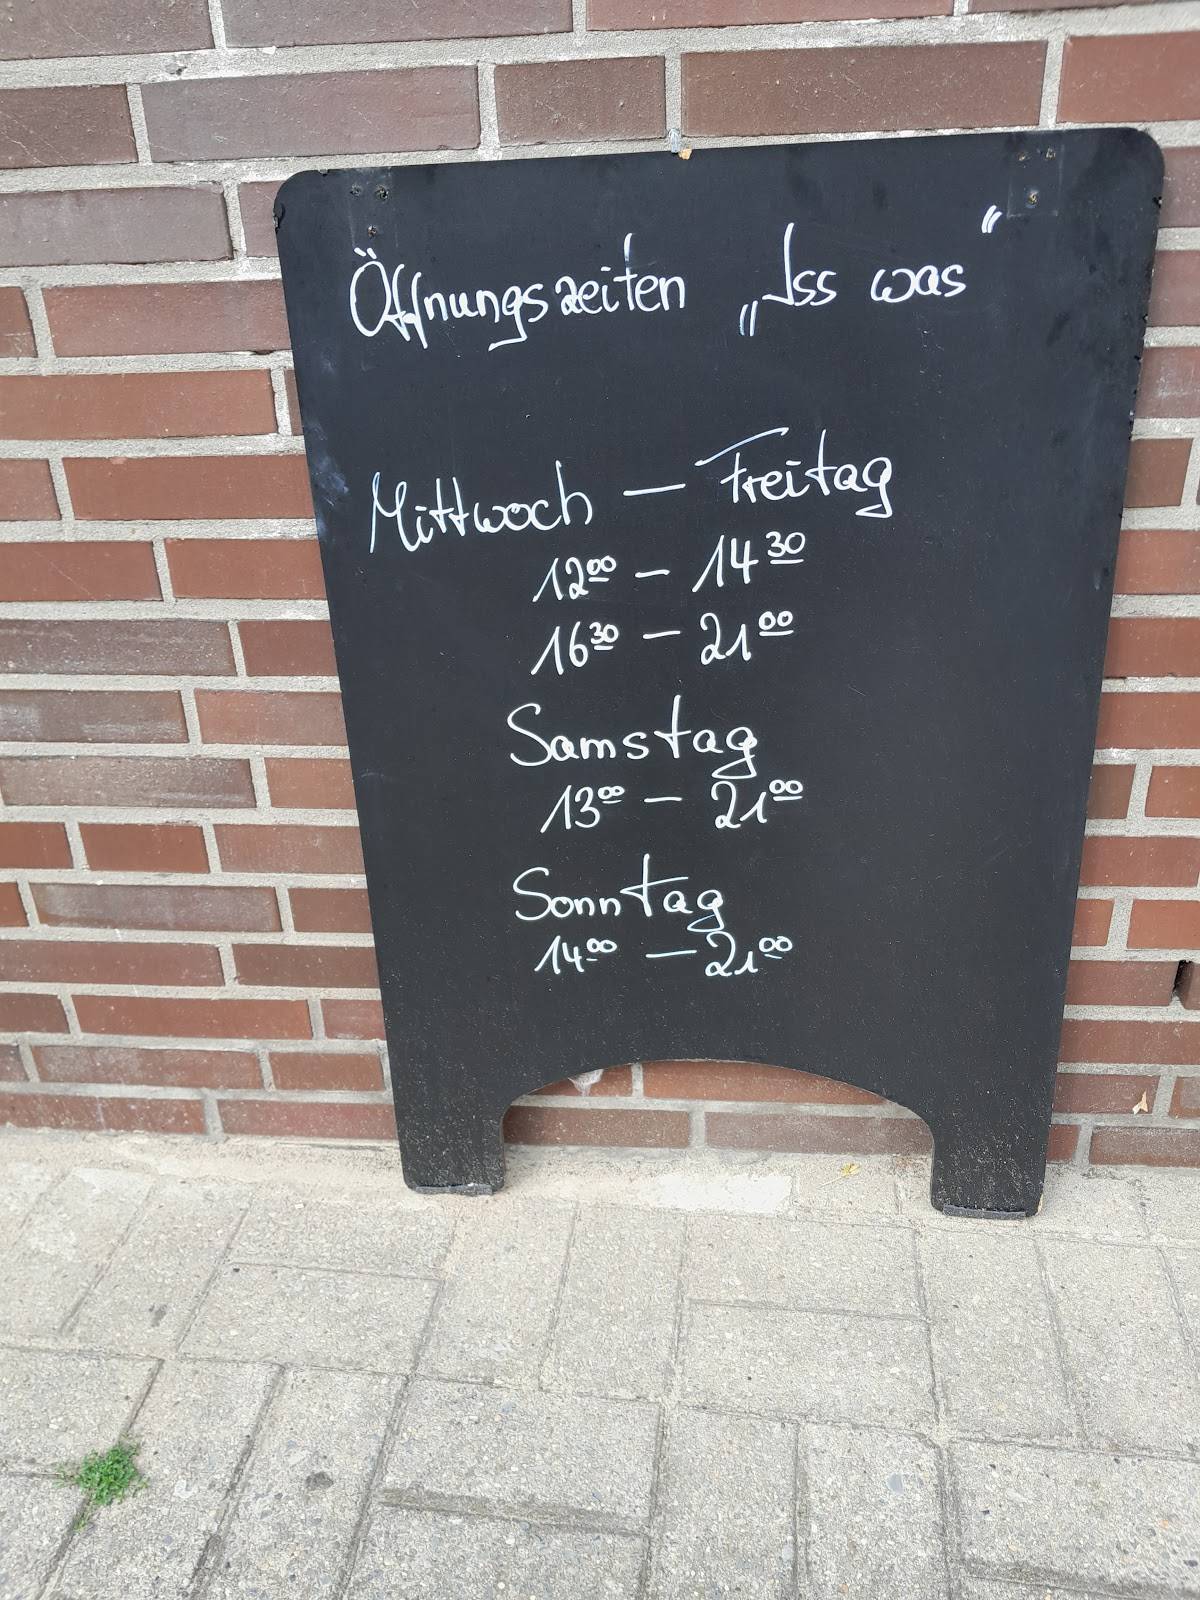 Öffnungszeiten „Iss was“
Mittwoch – Freitag
12⁰⁰ – 14³⁰
16³⁰ – 21⁰⁰
Samstag
13⁰⁰ – 21⁰⁰
Sonntag
14⁰⁰ – 21⁰⁰